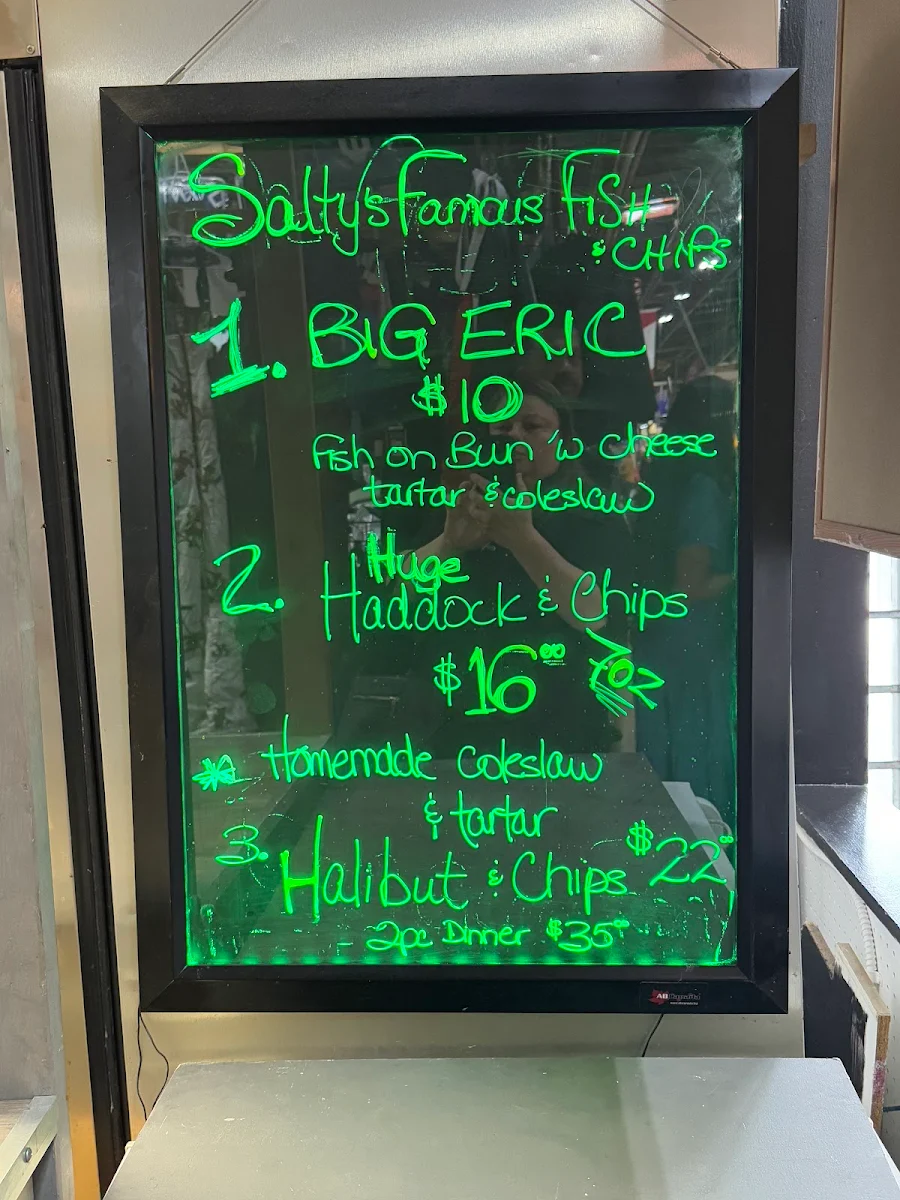 Salty's Famous FISH
& CHIPS
1. BIG ERIC
$10
Fish on Bun 'w cheese
tartar & coleslaw
2. Huge
Haddock & Chips
$16.00 7oz
* Homemade coleslaw
& tartar
3. Halibut & Chips $22.00
2pc Dinner $35.00